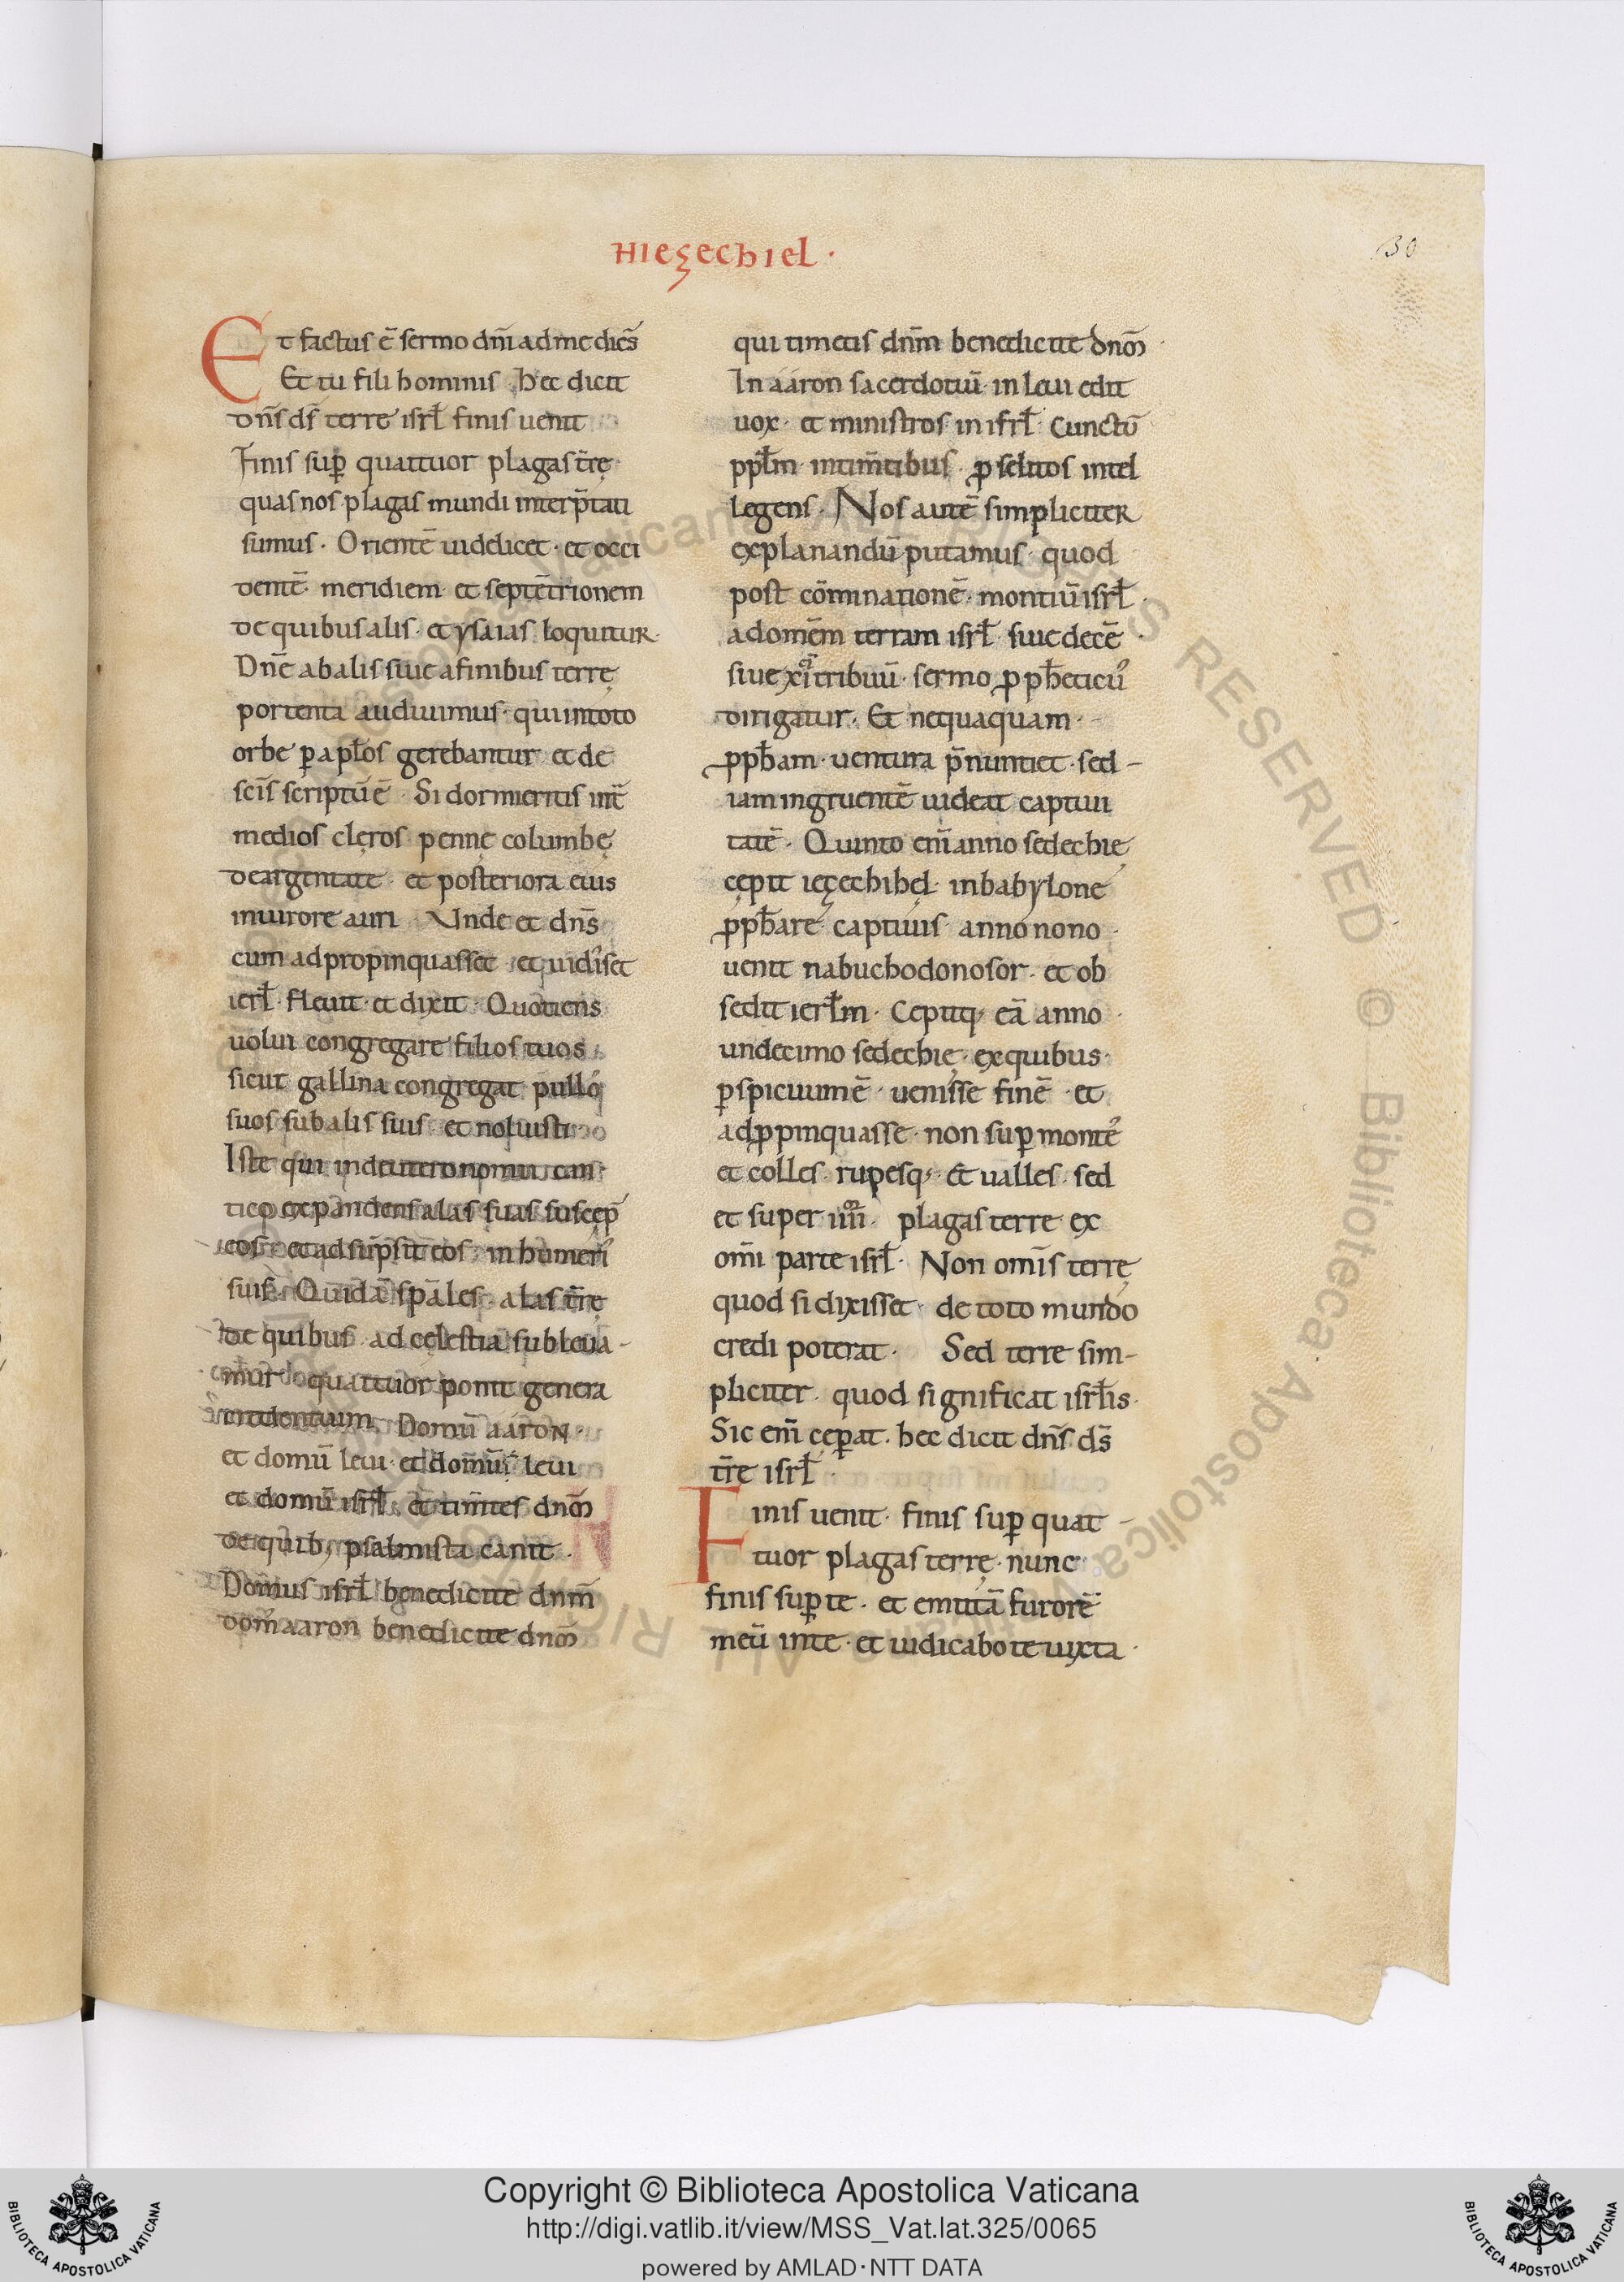 HIEZECHIEL ·
130
Et factus ē sermo dn̄i ad me dicēs
Et tu fili hominis Hec dicit
dn̄s ds̄ terre isrł finis uenit
Finis sup̄ quattuor plagas t̄rę
quas nos plagas mundi interp̄tati
sumus · Orientē uidelicet · et occi
dentē · meridiem · et septētrionem
de quibus alis · et ysaias loquitur ·
Dn̄e ab alis siue a finibus terrę
portenta audiuimus · qui in toto
orbe p̱ apłos gerebantur · et de
scīs scriptū ē · Si dormieritis int̄
medios clęros pennę columbę
deargentate · et posteriora eius
in uirore auri Unde et dn̄s
cum adpropinquasset et uidisset
ierł · fleuit · et dixit · Quotiens
uolui congregare filios tuos
sicut gallina congregat pullo
suos sub alis suis et noluisti
Iste qui in deuteronomii can
tico expandens alas suas suscep̄
eos · et adsūpsit eos · in humeri
suis · Quidā sp̄ales · alas t̄rę
de quibus · ad cęlestia subleua -
mur quattuor ponit genera
credentium Domū aaron ·
et domū leui · et domū leui
et domū isrł · et tim̄tes dnm̄
de quib; psalmista canit ·
Domus isrł benedicite dnm̄
dom' aaron benedicite dnm̄
qui timetis dnm̄ benedicite dnm̄ ·
In aaron sacerdotiū · in leui edit
uox · et ministros in isrł · Cunctū
ppłm · intim̄tibus · p̱selitos intel
legens · Nos autē simpliciter
explanandū putamus · quod
post cōminationē · montiū isrł ·
ad omēm terram isrł · siue decē ·
siue xii tribuū · sermo p̱pħeticus
dirigatur · Et nequaquam -
p̱pħam · uentura p̄nuntiet · sed -
iam ingruentē uideat captiui
tatē · Quinto enī anno sedechie
cępit ięzechihel · in babylone
p̱pħare captiuis · anno nono ·
uenit nabuchodonosor · et ob
sedit ierłm · Cepitq; eā anno ·
undecimo sedechię · ex quibus ·
p̱spicuum ē · uenisse finē et
adp̱pinquasse · non sup̱ monte
et colles · rupesq; · et ualles · sed
et super iiii · plagas terre ex
om̄i parte isrł · Non om̄is terrę
quod si dixisset · de toto mundo
credi poterat · Sed terre sim-
pliciter · quod significat isrłis ·
Sic enī cęp̱at · hec dicit dn̄s ds̄
t̄re isrł ·
Finis uenit · finis sup̱ quat -
tuor plagas terrę · nunc
finis sup̱ te · et emittā furorē
meū in te · et iudicabo te iuxta ·
Copyright © Biblioteca Apostolica Vaticana
http://digi.vatlib.it/view/MSS_Vat.lat.325/0065
powered by AMLAD·NTT DATA
BIBLIOTECA APOSTOLICA VATICANA
BIBLIOTECA APOSTOLICA VATICANA